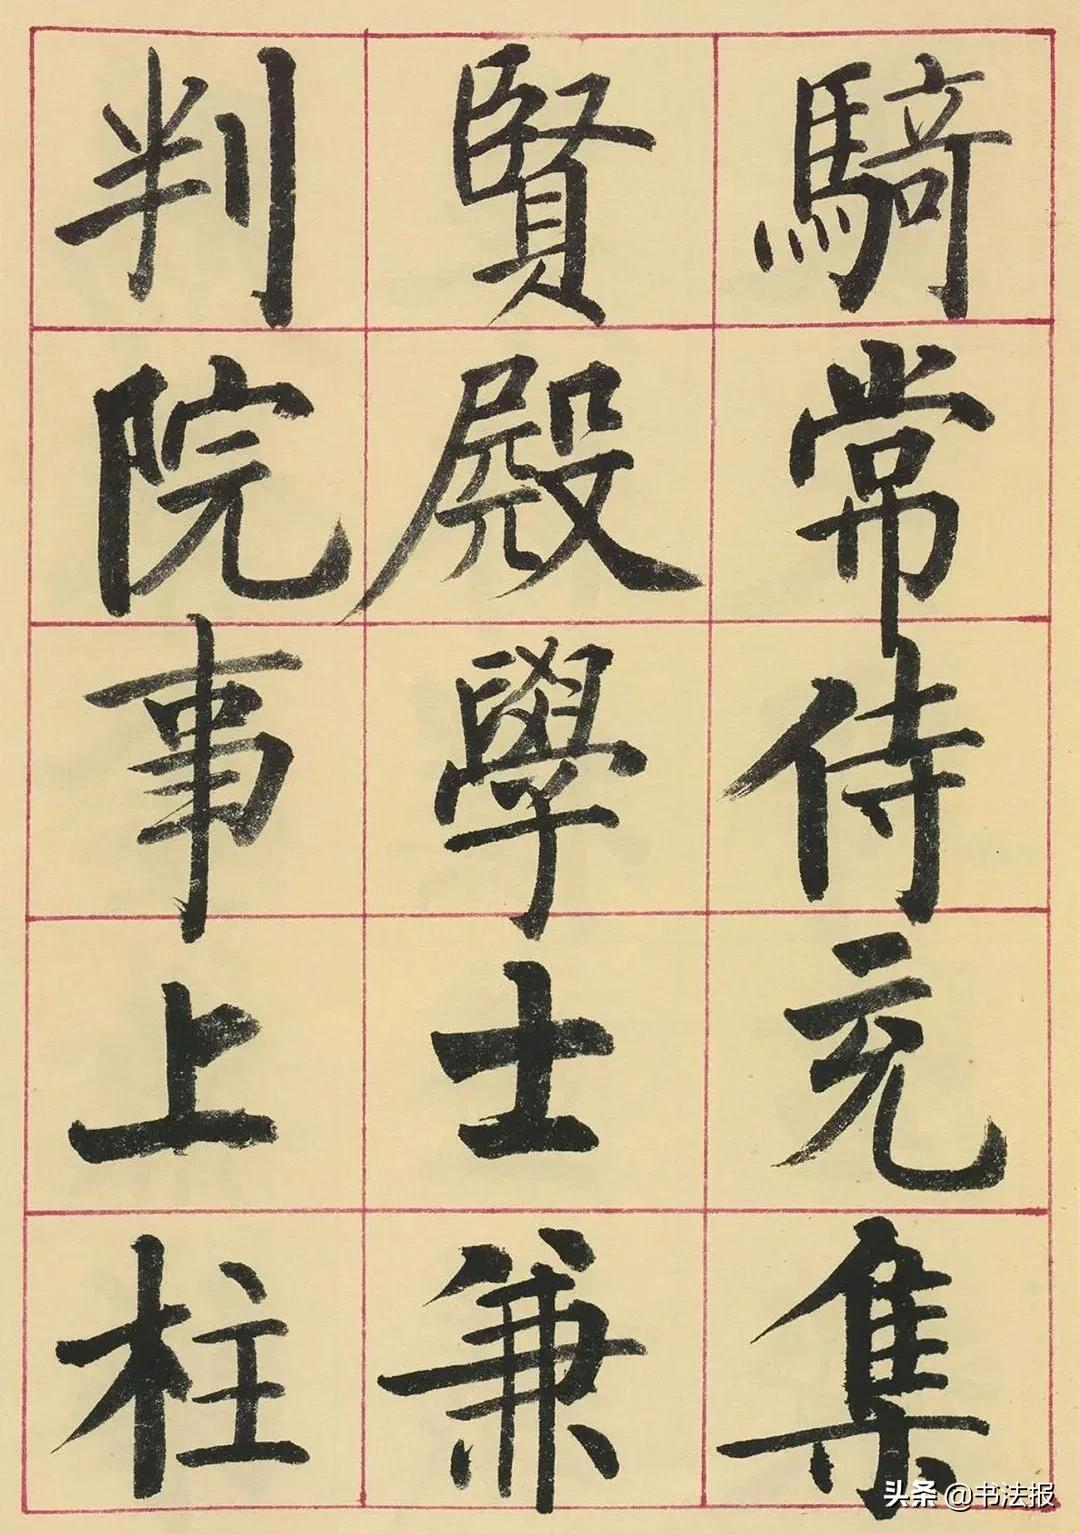 騎常侍充集
賢殿學士兼
判院事上柱
头条 @书法报